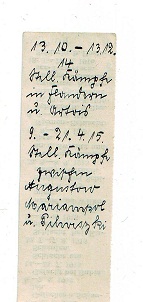 13. 10. - 13.12.
14
Stell. Kämpfe
in Flandern
u. Artois
9. - 21. 4. 15.
Stell. Kämpfe
zwischen
Augustow
Mariampol
u. Pilwiszki